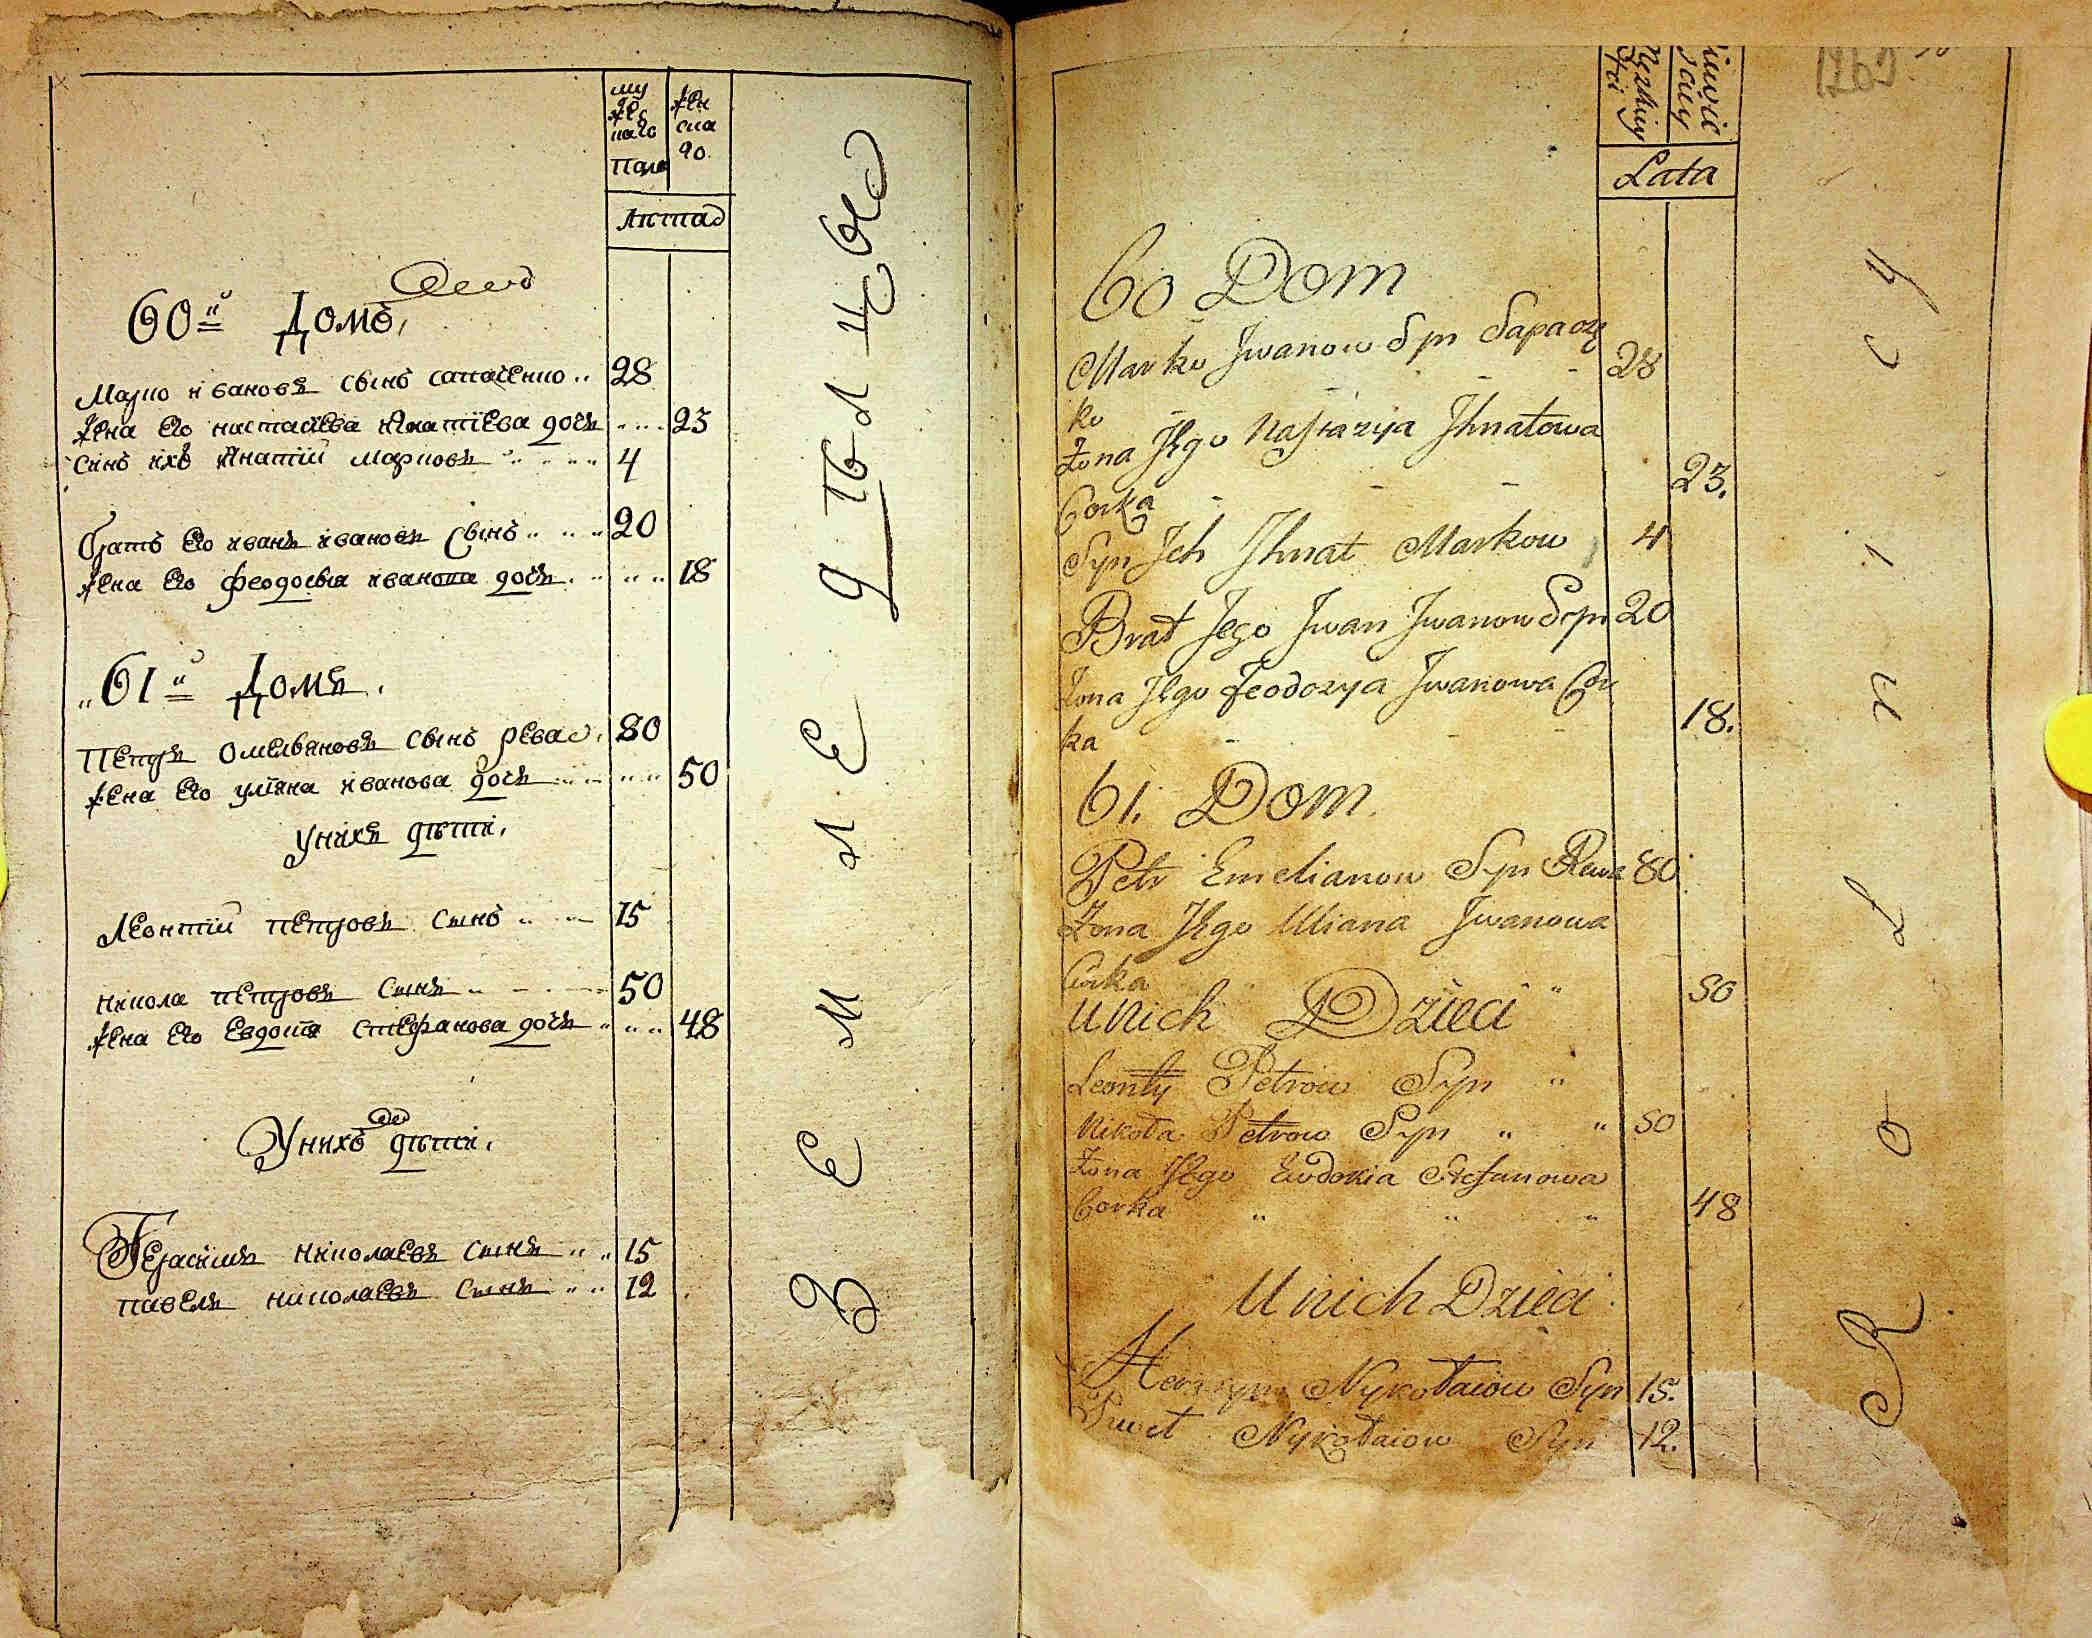 му
же
наго
Пола
жен
ска
го.
Лѣта
60й Домъ,
Марко ивановъ сынъ сапаченко
28
жена его настасїева игнатїева дочь
23
сынъ ихъ игнатій марковъ
4
братъ его иванъ ивановъ сынъ
20
жена его феодосия иванова дочь
18
61й Домъ.
Петръ омельяновъ сынъ рева
80
жена его улїяна иванова дочь
50
Унихъ дѣти.
Леонтїй петровъ сынъ
15
никола петровъ сынъ
50
жена его евдокїя стефанова дочь
48
Унихъ дѣти.
Герасимъ николаевъ сынъ
15
павелъ николаевъ сынъ
12
ЗЕМЛЕДѢЛЦЫ
Lata
60 Dom
Marko Jwanow Syn Sapaczę
28
ko
Żona Jego Nastazya Jhnatowa
23.
Corka
Syn Jch Jhnat Markow
4
Brat Jego Jwan Jwanow Syn
20
Żona Jego Feodozya Jwanowa Cor
18.
ka
61. Dom
Petr Emelianow Syn Rewa
80
Żona Jego Uliana Jwanowa
Corka
50
Unich Dzieci
Leonty Petrow Syn
Nikoła Petrow Syn
50
Żona Jego Ewdokia Stefanowa
Corka
48
Unich Dzieci
Herasym Nykołaiow Syn
15.
Paweł Nykołaiow Syn
12.
Rolnicy